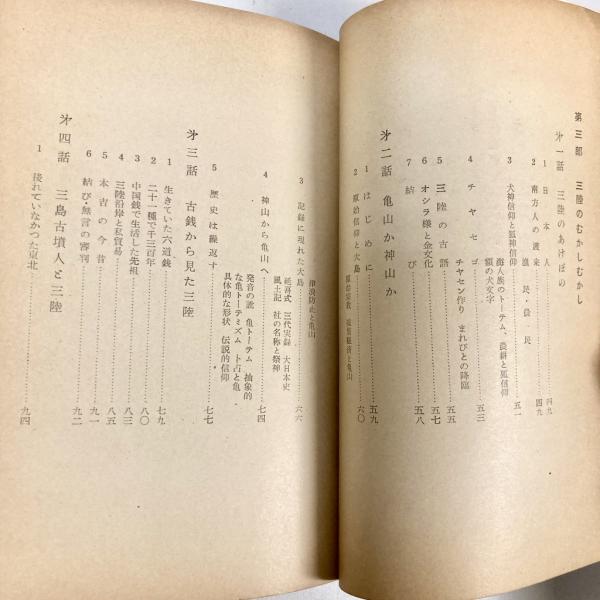 第三部 三陸のむかしむかし
才一話 三陸のあけぼの
1 日本人……四九
2 南方人の渡来……四九
漁民・農民
3 犬神信仰と狐神信仰……五一
海人族のトーテム、農耕と狐信仰
額の犬文字
4 チヤセゴ……五三
チヤセン作り まれびとの降臨
5 三陸の古語……五五
6 オシラ様と金文化……五七
7 結び……五八
才二話 亀山か神山か
1 はじめに……五九
2 原始信仰と大島……六〇
原始宗教 亀山
3 記録に現れた大島……六六
津浪防止と亀山
延喜式 三代実録 大日本史
風土記 社の名称と祭神
4 神山から亀山へ……七四
発音の訛 亀トーテム 抽象的
な亀トーテミズム 卜占と亀
具体的な形状 伝説的信仰
5 歴史は繰返す……七七
才三話 古銭から見た三陸
1 生きていた六道銭……七九
2 二十一種で千三百年……八〇
3 中国銭で生活した先祖……八三
4 三陸沿岸と私貿易……八五
5 本吉の今昔……九一
6 結び・無言の審判……九二
才四話 三島古墳人と三陸
1 後れていなかつた東北……九四